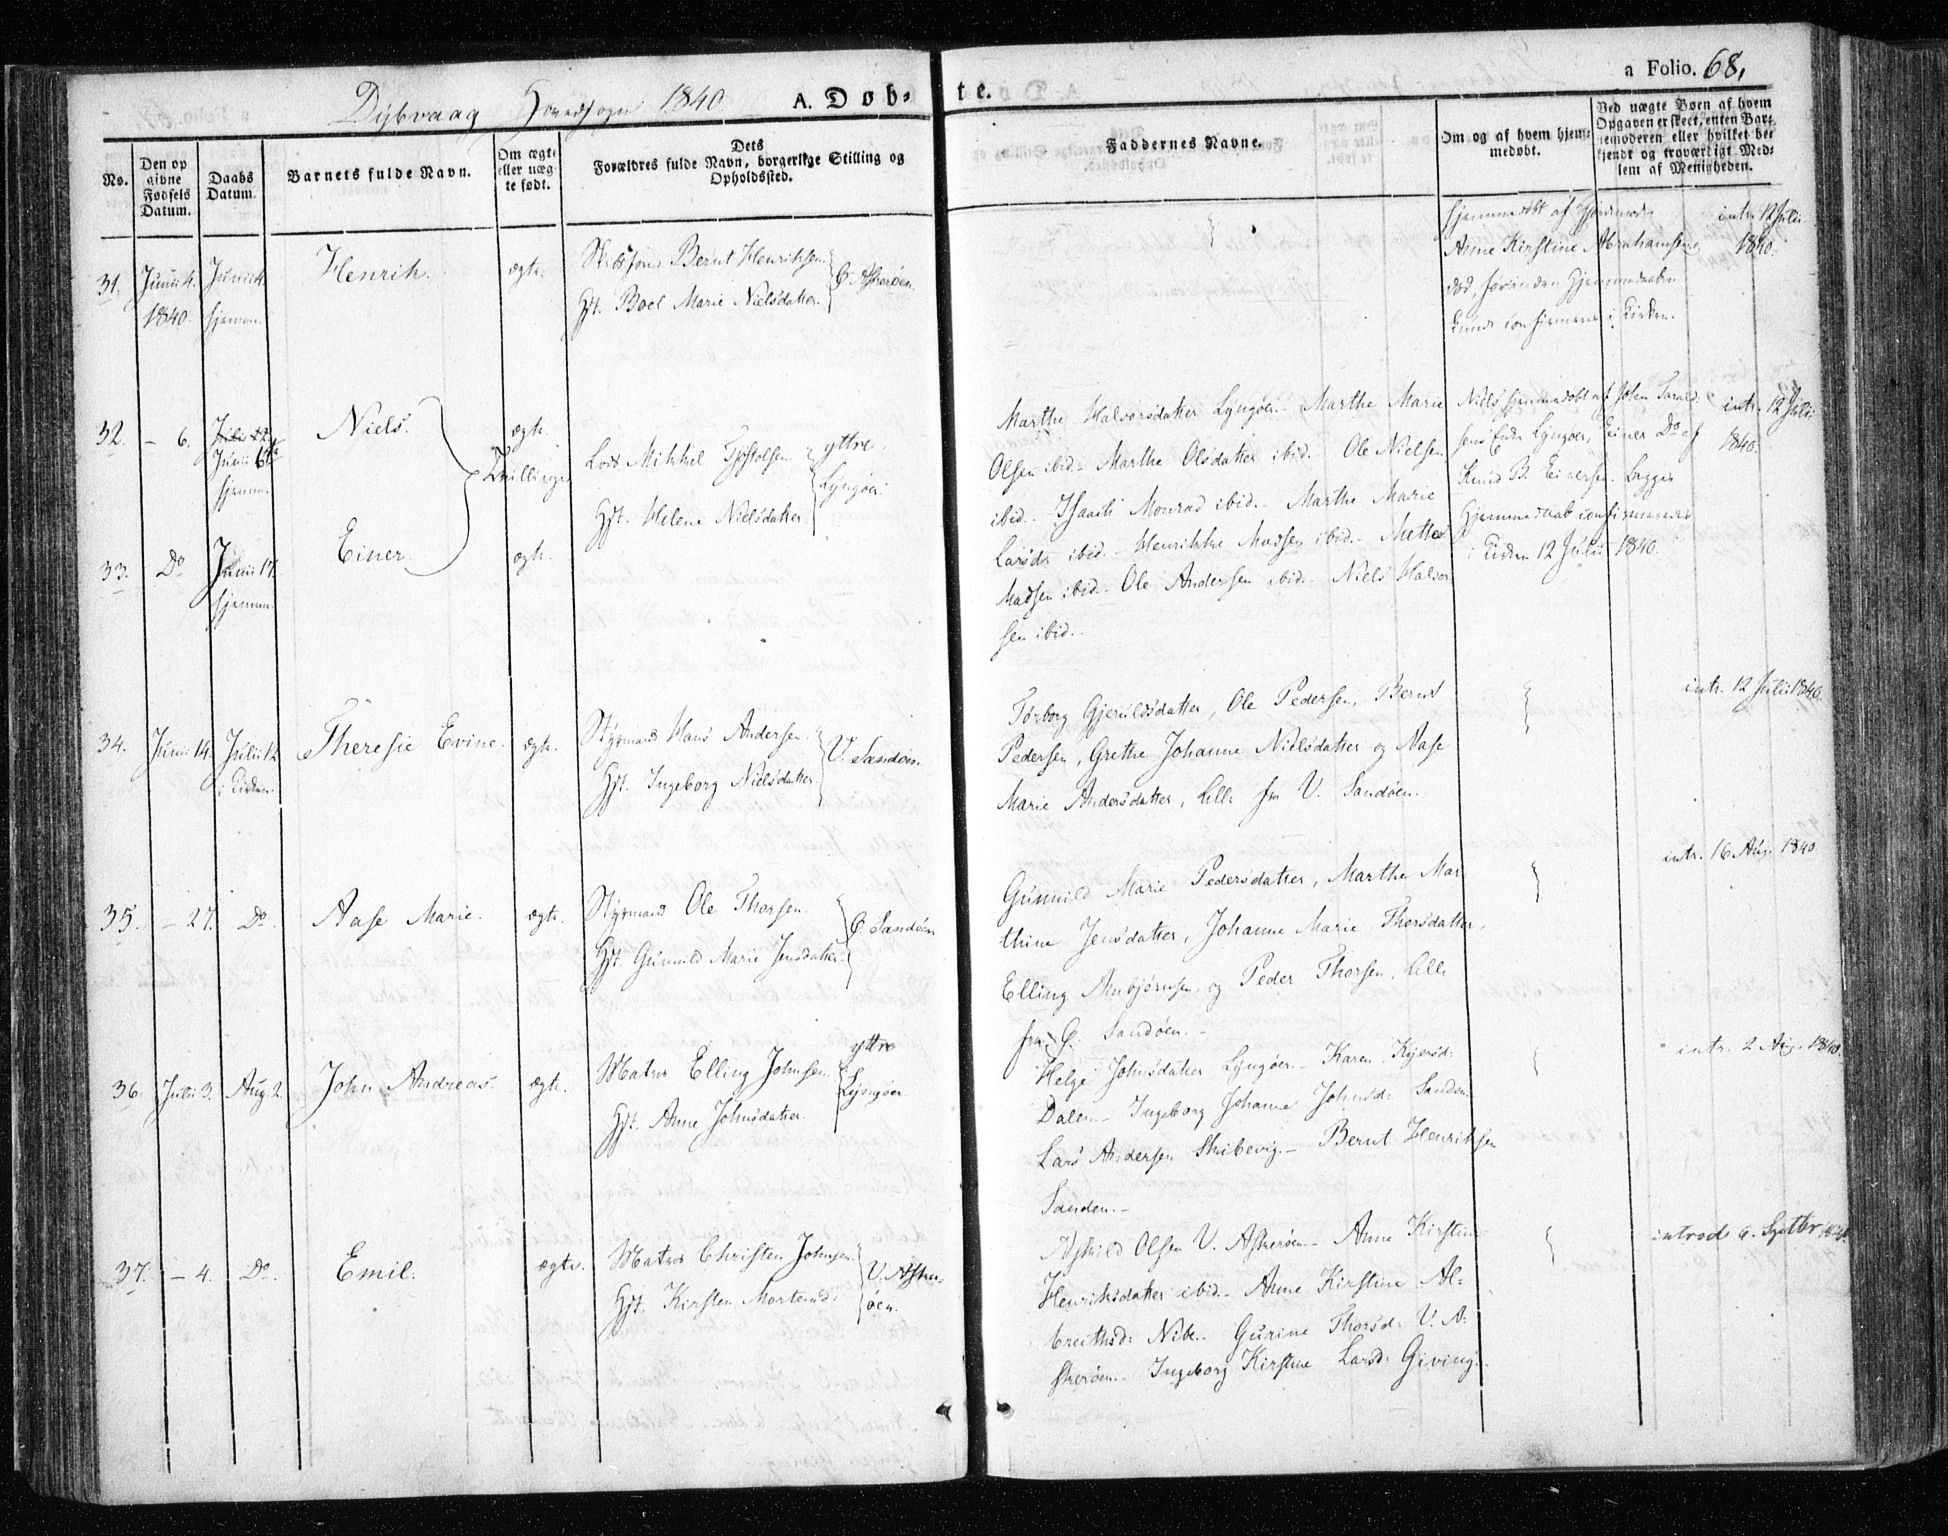 Dybvaag Hovedsogn 1840 A. Døb-te. a Folio. 68,
No.
Den op
givne
Fødsels
Datum.
Daabs
Datum.
Barnets fulde Navn.
Om ægte
eller uæg
te født.
Dets
Forældres fulde Navn, borgerlige Stilling og
Opholdssted.
Faddernes Navne.
Om og af hvem hjem-
medøbt.
Ved uægte Børn af hvem
Opgaven er skeet, enten Bar-
nemoderen eller hvilket be-
kjendt og troværdigt Med-
lem af Menigheden.
31. Junii 4. 1840. Junii 4. hjemm. Henrik. ægte.
Bernt Henriksen
Gjt. Boel Marie Nielsdatter. Ø. Askerøen.
hjemmedøbt af Gjordmod.
Anne Kirstine Abrahamsen,
død, førinden Hjemmedaaben
kunde confirmeres i Kirken.
intr. 12 Julii
1840.
32. – 6. Junii 6te hjemm. Niels. ægte. Tvillinger
Lods Mikkel Tjøstolsen yttre
Gjt. Helene Nielsdatter Lyngøer.
33. Do Junii 14. hjemm. Einer. ægte.
Marthe Halvorsdatter Lyngøer. Marthe Marie
Olsen ibid. Marthe Olsdatter ibid. Ole Nielsen
ibid. Isaach Monrad ibid. Marthe Marie
Larsd. ibid. Henrikke Madsen ibid. Mette
Madsen ibid. Ole Andersen ibid. Niels Halvor
sen ibid.
Niels hjemmedøbt af John Tarald-
sens Enke Lyngøer, Einer Do af
Knud B. Einersen. Begges
Hjemmedaab confirmeredes
i Kirken 12 Julii 1840.
intr. 12 Julii
1840.
34. Junii 14. Julii 12 i Kirken. Theresie Evine. ægte.
Styrmand Hans Andersen.
Gjt. Ingeborg Nielsdatter. V. Sandøen.
Torborg Gjeruldsdatter, Ole Pedersen, Bernt
Pedersen, Grethe Johanne Nielsdatter og Aase
Marie Andersdatter, alle fra V. Sandøen.
intr. 12 Julii 1840.
35. – 27. Do. Aase Marie. ægte.
Styrmand Ole Thorsen.
Gjt. Gunnild Marie Jensdatter. Ø Sandøen
Gunnild Marie Pedersdatter, Marthe Mar
thine Jensdatter, Johanne Marie Thorsdatter,
Elling Anbjørnsen og Peder Thorsen, alle
fra Ø. Sandøen.
intr. 16 Aug. 1840.
36. Julii 3. Aug. 2. John Andreas. ægte.
Matros Elling Johnsen yttre
Gjt. Anne Johnsdatter. Lyngøer.
Helge Johnsdatter Lyngøer. Karen
Dalen. Ingeborg Johanne Johnsd: Sanden.
Lars Andersen Skibevig. Bernt Henriksen
Sanden.
intr. 2 Aug. 1840.
37. – 4. Do. Emil. ægte.
Matros Christen Johnsen
Gjt. Kirsten Mortensd: V. Asker-
øen.
Olsen V. Askerøen. Anne Kirstine
Henriksdatter ibid. Anne Kirstine Al-
breithsd: Nibe. Gurine Thorsd: V. A-
skerøen. Ingeborg Kirstine Larsd: Giving.
introd. 6. Septbr 1840.